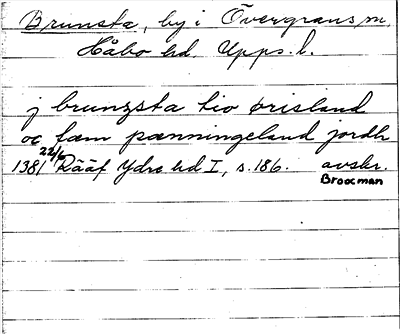 Brunsta, by i Övergrans sn.
Håbo hd. Upps. l.
j brunzsta tio ørisland
oc fæm pænningeland jordh
1381 22/6 Rääf Ydre hd I, s. 186. avskr.
Brocman